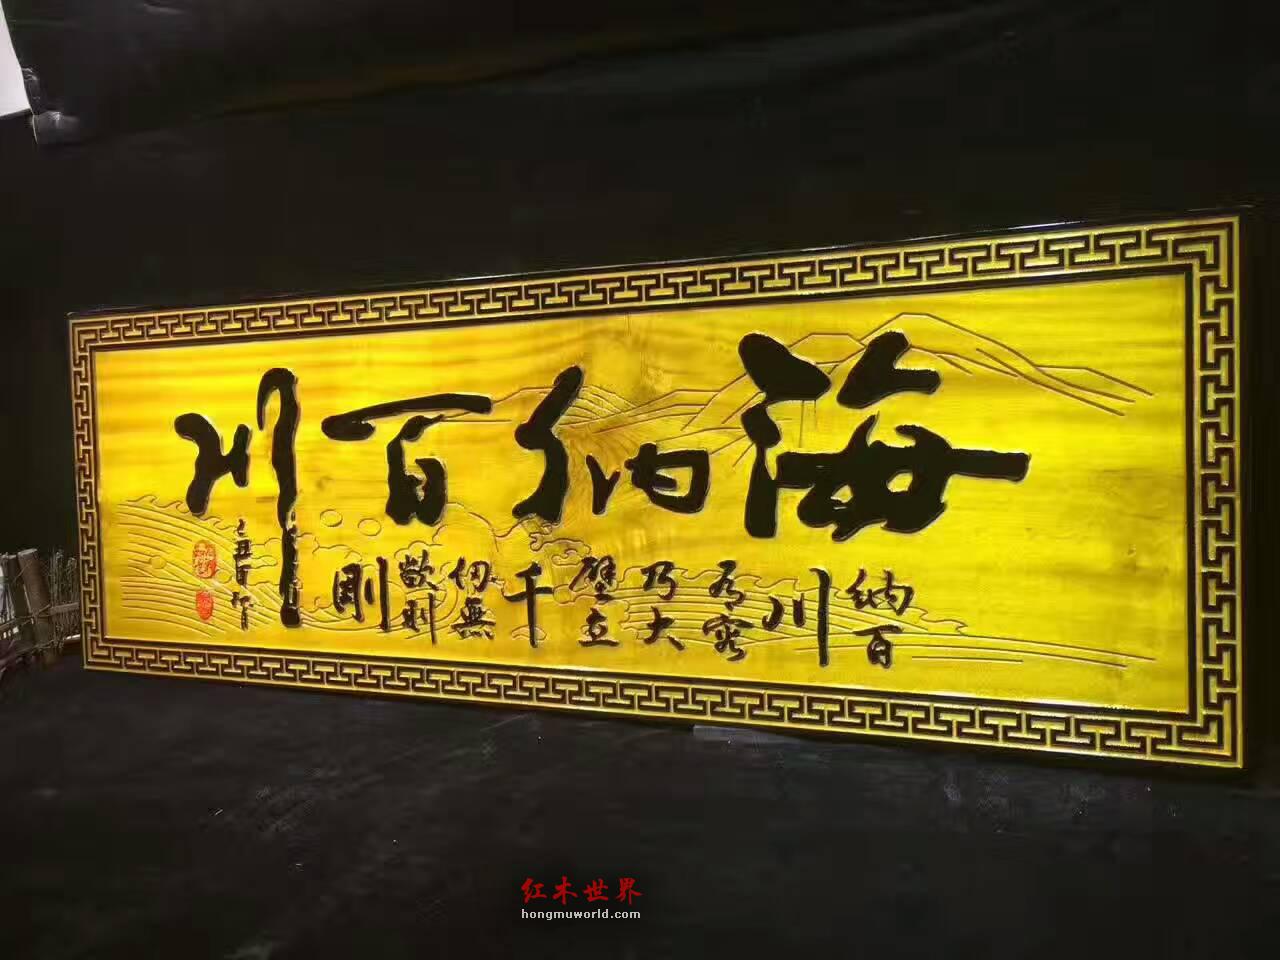 海納百川
納百
川
有容
乃大
壁立
千
仞無
欲則
剛
红木世界
hongmuworld.com